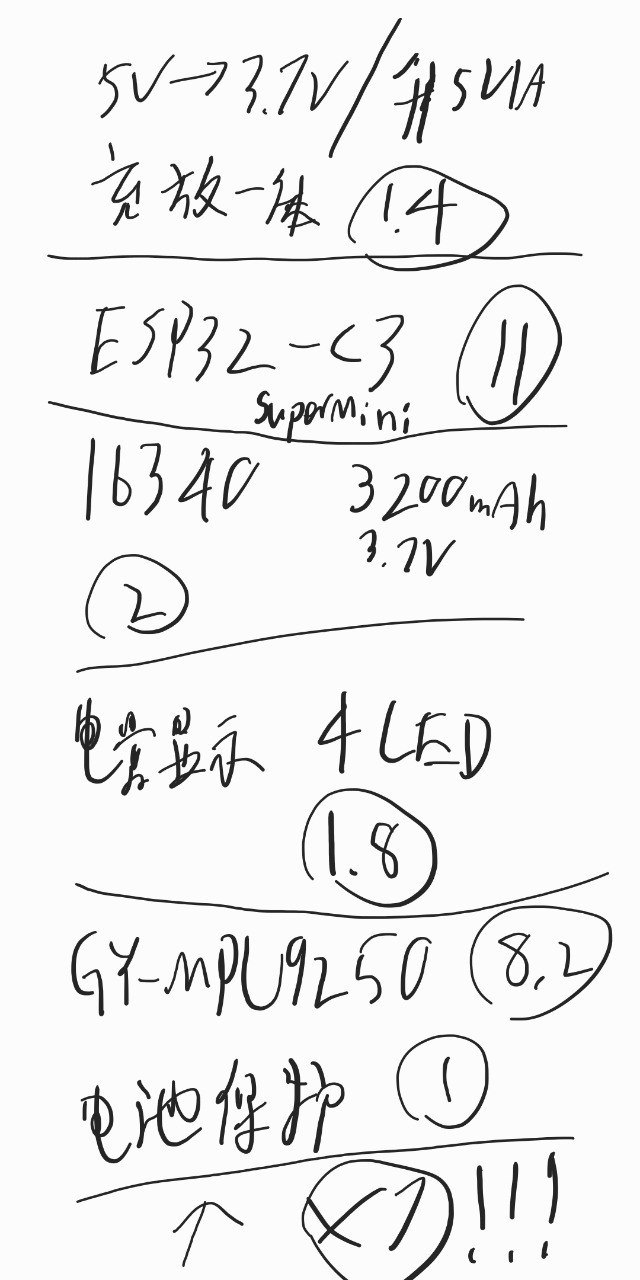 5V→3.7V/升5V1A
充放一体 1.4
ESP32-C3 11
SuperMini
16340 3200mAh
3.7V
2
电容显示 4LED
1.8
GY-MPU9250 8.2
电池保护 1
↑ ×7 !!!